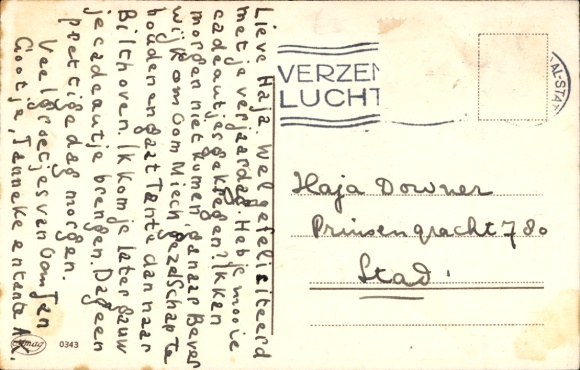 Lieve Haja. Wel gefeliciteerd
met je verjaardag. Heb je mooie
cadeautjes gekregen? Ik kan
morgen niet komen, ga naar Bever
wijk om Oom Miech gezelschap te
houden en gaat Tante dan naar
Bilthoven. Ik kom je later gauw
je cadeautje brengen. Dag een
prettige dag morgen.
Veel groetjes van Oom Jan
Gootje, Janneke en tante AK.
0343
VERZEN
LUCHT
AL-STA
Haja Downer
Prinsengracht 780
Stad